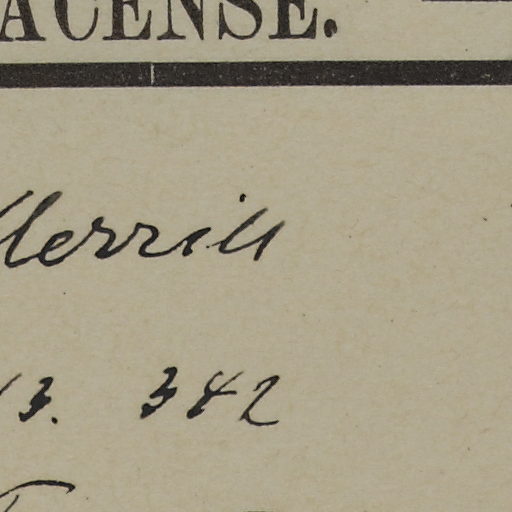 ACENSE.
Merrill
13. 382